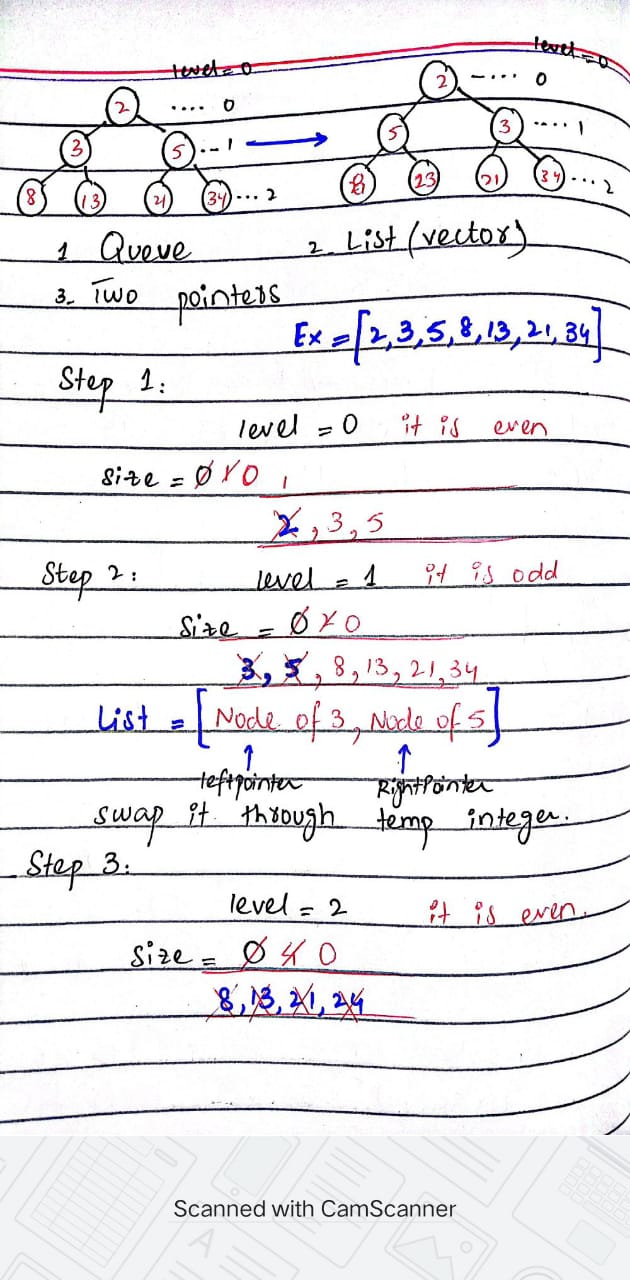 level = 0 level = 0
2 .... 0 2 .... 0
3 5 ... 1 5 3 .... 1
8 13 21 34 ... 2 23 21 34 ... 2
1 Queue 2. List (vector)
3. Two pointers
Ex = [2,3,5,8,13,21,34]
Step 1:
level = 0 it is even
size = 0 1 0 1
2, 3, 5
Step 2:
level = 1 it is odd
Size = 0 2 0
3, 5, 8, 13, 21, 34
List = [Node of 3, Node of 5]
leftpointer RightPointer
swap it through temp integer.
Step 3:
level = 2 it is even.
Size = 0 4 0
8, 13, 21, 24
Scanned with CamScanner